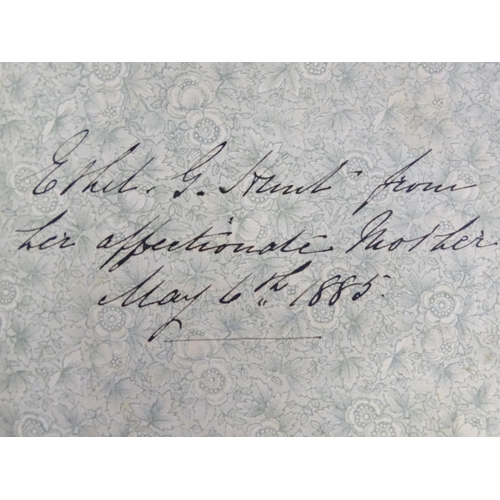 Ethel. G. Hunt from
her affectionate Mother
May 6th 1885.